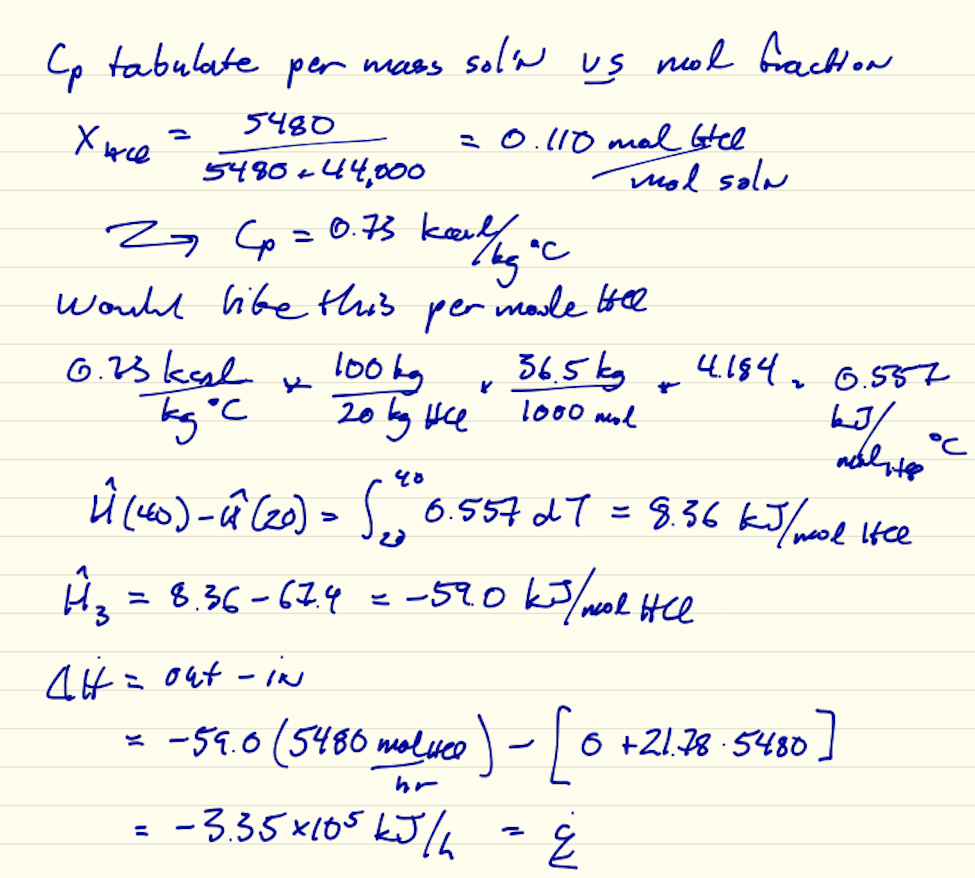 Cp tabulate per mass sol'n vs mol fraction
X HCl = 5480 / 5480 + 44,000 = 0.110 mol HCl / mol soln
→ Cp = 0.73 kcal/kg °C
Would like this per mole HCl
0.73 kcal / kg °C × 100 kg / 20 kg HCl × 36.5 kg / 1000 mol × 4.184 = 0.557 kJ / mol HCl °C
Ĥ(40) - Ĥ(20) = ∫ 20 40 0.557 dT = 8.36 kJ/mol HCl
Ĥ3 = 8.36 - 67.4 = -59.0 kJ/mol HCl
ΔḢ = out - in
= -59.0 (5480 mol HCl / hr) - [0 + 21.78 · 5480]
= -3.35 × 10^5 kJ/h = Q̇